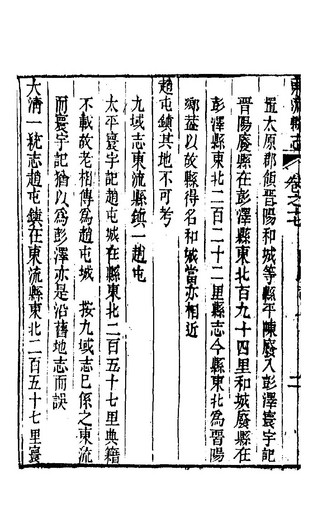 東流縣志 卷之七 二
置太原郡領晉陽和城等縣平陳廢入彭澤寰宇記
晉陽廢縣在彭澤縣東北百九十四里和城廢縣在
彭澤縣東北二百二十二里縣志今縣東北為晉陽
鄉葢以故縣得名和城當亦相近
趙屯鎮其地不可考
九域志東流縣鎮一趙屯
太平寰宇記趙屯城在縣東北二百五十七里典籍
不載故老相傳為趙屯城 按九域志已係之東流
而寰宇記猶以為彭澤亦是沿舊地志而誤
大淸一統志趙屯鎮在東流縣東北二百五十七里寰